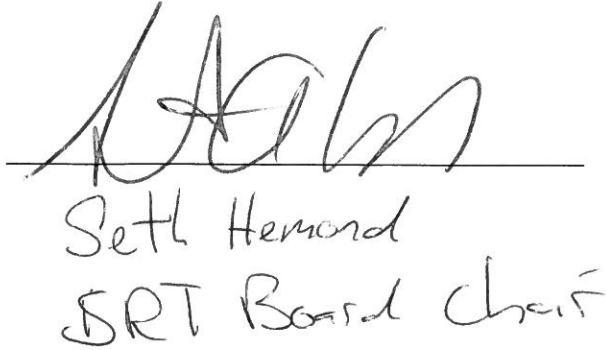 Seth Hemond
BRT Board Chair